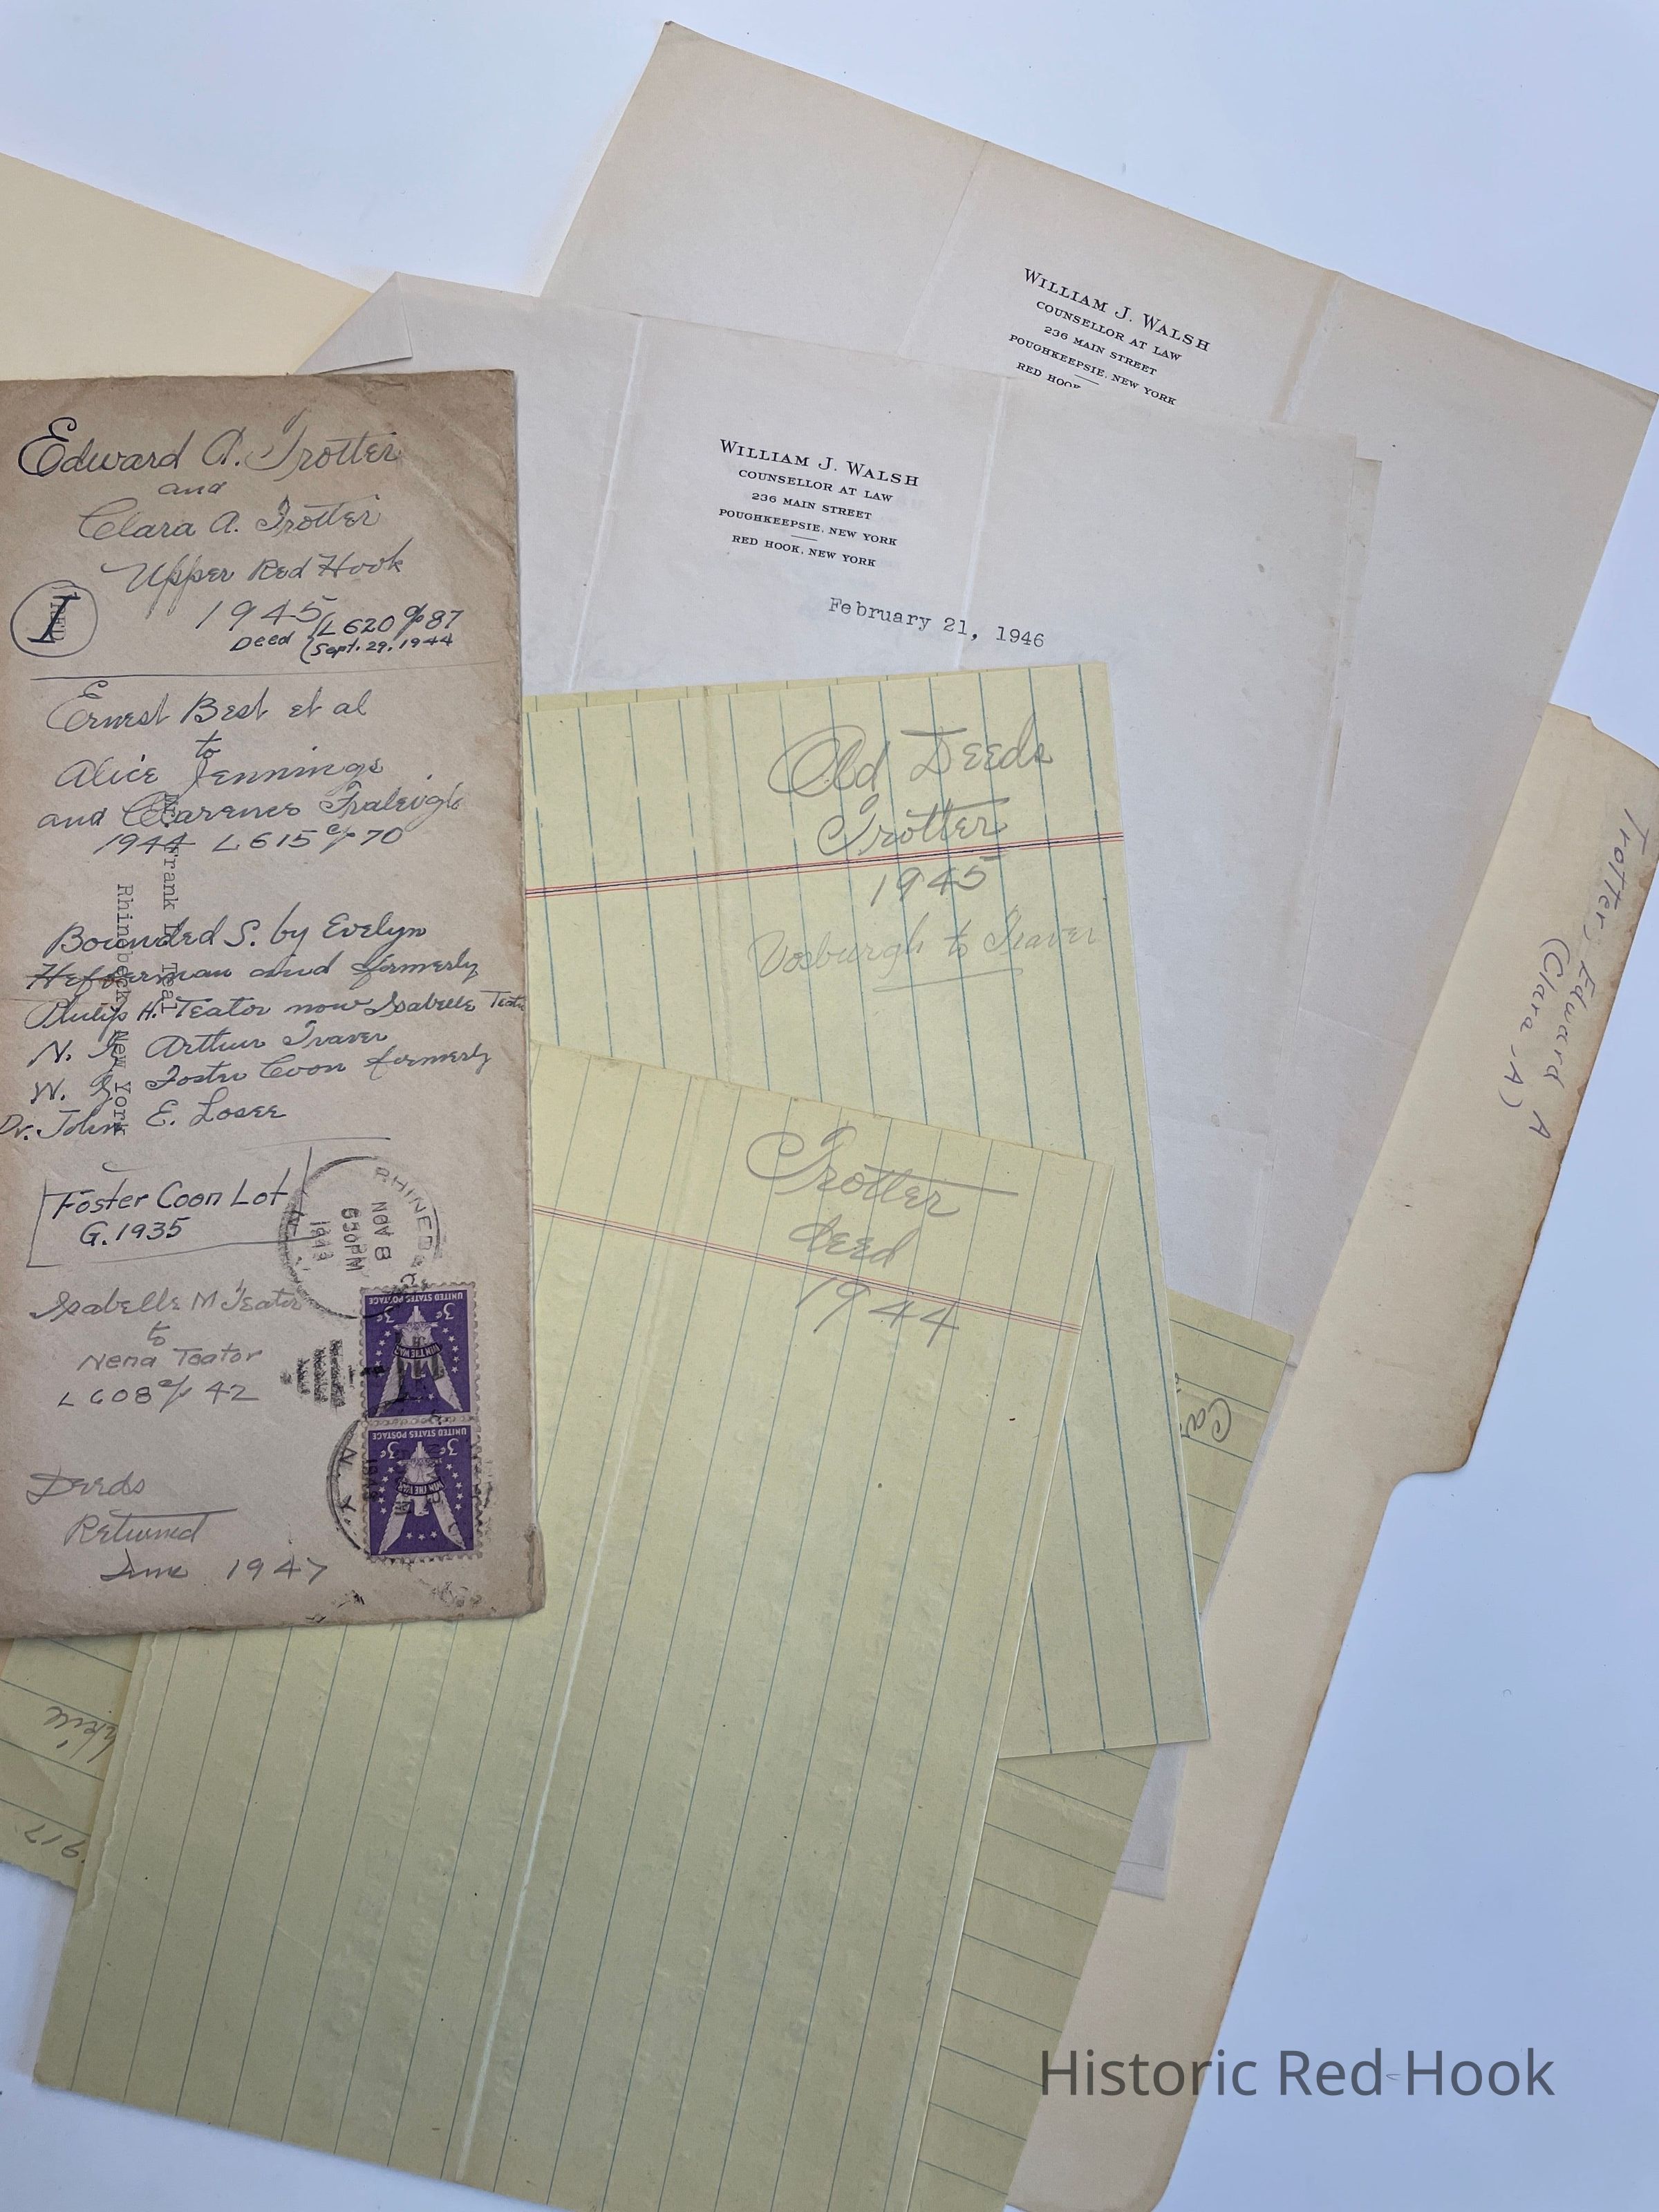 WILLIAM J. WALSH
COUNSELLOR AT LAW
236 MAIN STREET
POUGHKEEPSIE, NEW YORK
RED HOOK
WILLIAM J. WALSH
COUNSELLOR AT LAW
236 MAIN STREET
POUGHKEEPSIE, NEW YORK
RED HOOK, NEW YORK
February 21, 1946
Edward A. Trotter
and
Clara A. Trotter
Upper Red Hook
1945
L 620 p 87
Deed
Sept. 29. 1944
I
Ernest Best et al
to
Alice Jennings
and Clarence Fraleigh
1944 L 615 p 70
Frank Teal
Rhinebeck New York
Bounded S. by Evelyn
Hefferman and formerly
Philip H. Teator now Isabelle Teator
N. Arthur Traver
W. Foster Coon formerly
Dr. John E. Losee
Foster Coon Lot
G. 1935
RHINEBECK
NOV 8
630PM
1943
N. Y.
Isabelle M Teator
to
Nena Teator
L 608 p 42
UNITED STATES POSTAGE
3¢ 3¢
WIN THE WAR
UNITED STATES POSTAGE
3¢ 3¢
WIN THE WAR
Deeds
Returned
June 1947
Old Deeds
Trotter
1945
Vosburgh to Traver
Trotter
deed
1944
Trotter, Edward A
(Clara A)
Ca
917
Historic Red Hook